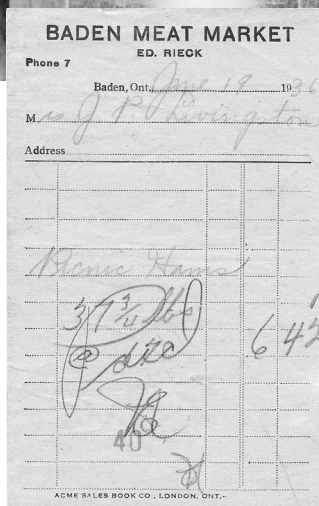 BADEN MEAT MARKET
ED. RIECK
Phone 7
Baden, Ont., June 19 1936
Mrs J P Livingston
Address
Picnic Hams
37 3/4 lbs
@ 17c 6 42
40
ACME SALES BOOK CO., LONDON, ONT.